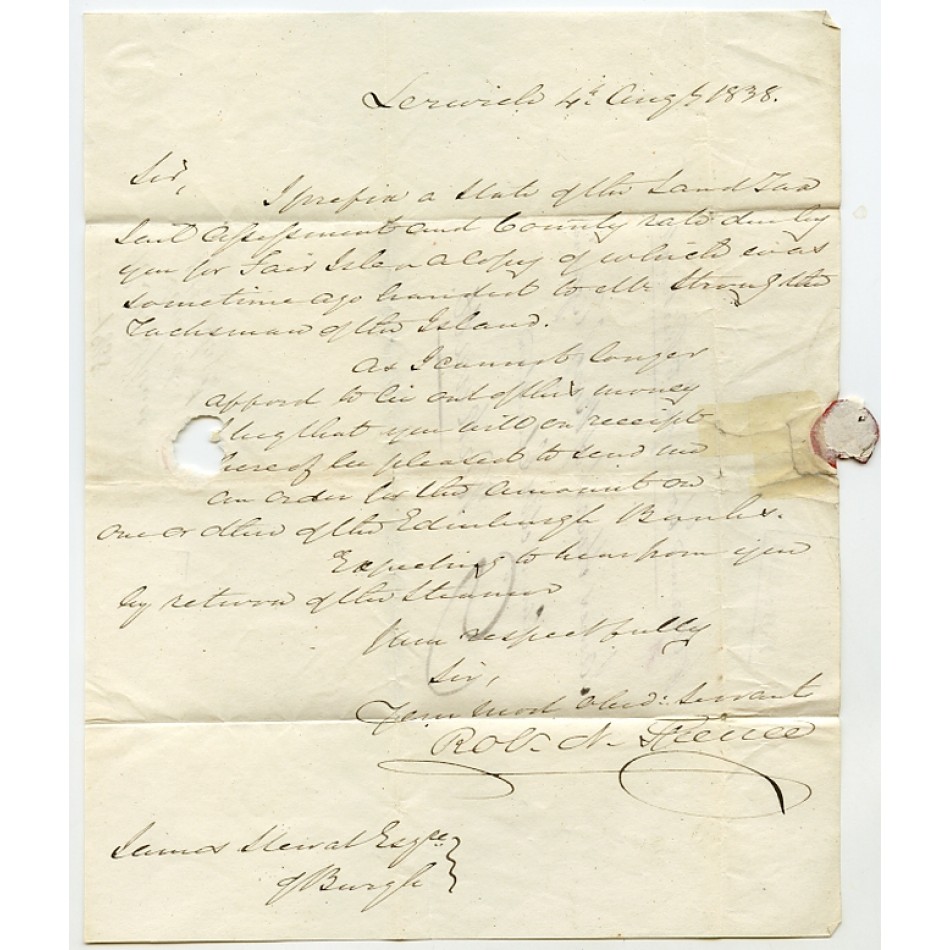 Lerwick 4th Augt 1838.
Sir,
I prefix a State of the Land Tax
Assessment and County rate due by
you for Fair Isle a Copy of which was
sometime ago handed to Mr Strong the
Tacksman of the Island.
As I cannot longer
afford to lie out of this money
I beg that you will on receipt
hereof be pleased to send me
an order for the amount on
one or other of the Edinburgh Banks.
Expecting to hear from you
by return of the Steamer
I am respectfully
Sir,
Your most Obedt: Servant
Robt. N. Spence
James Stewart Esqre
of Burgh